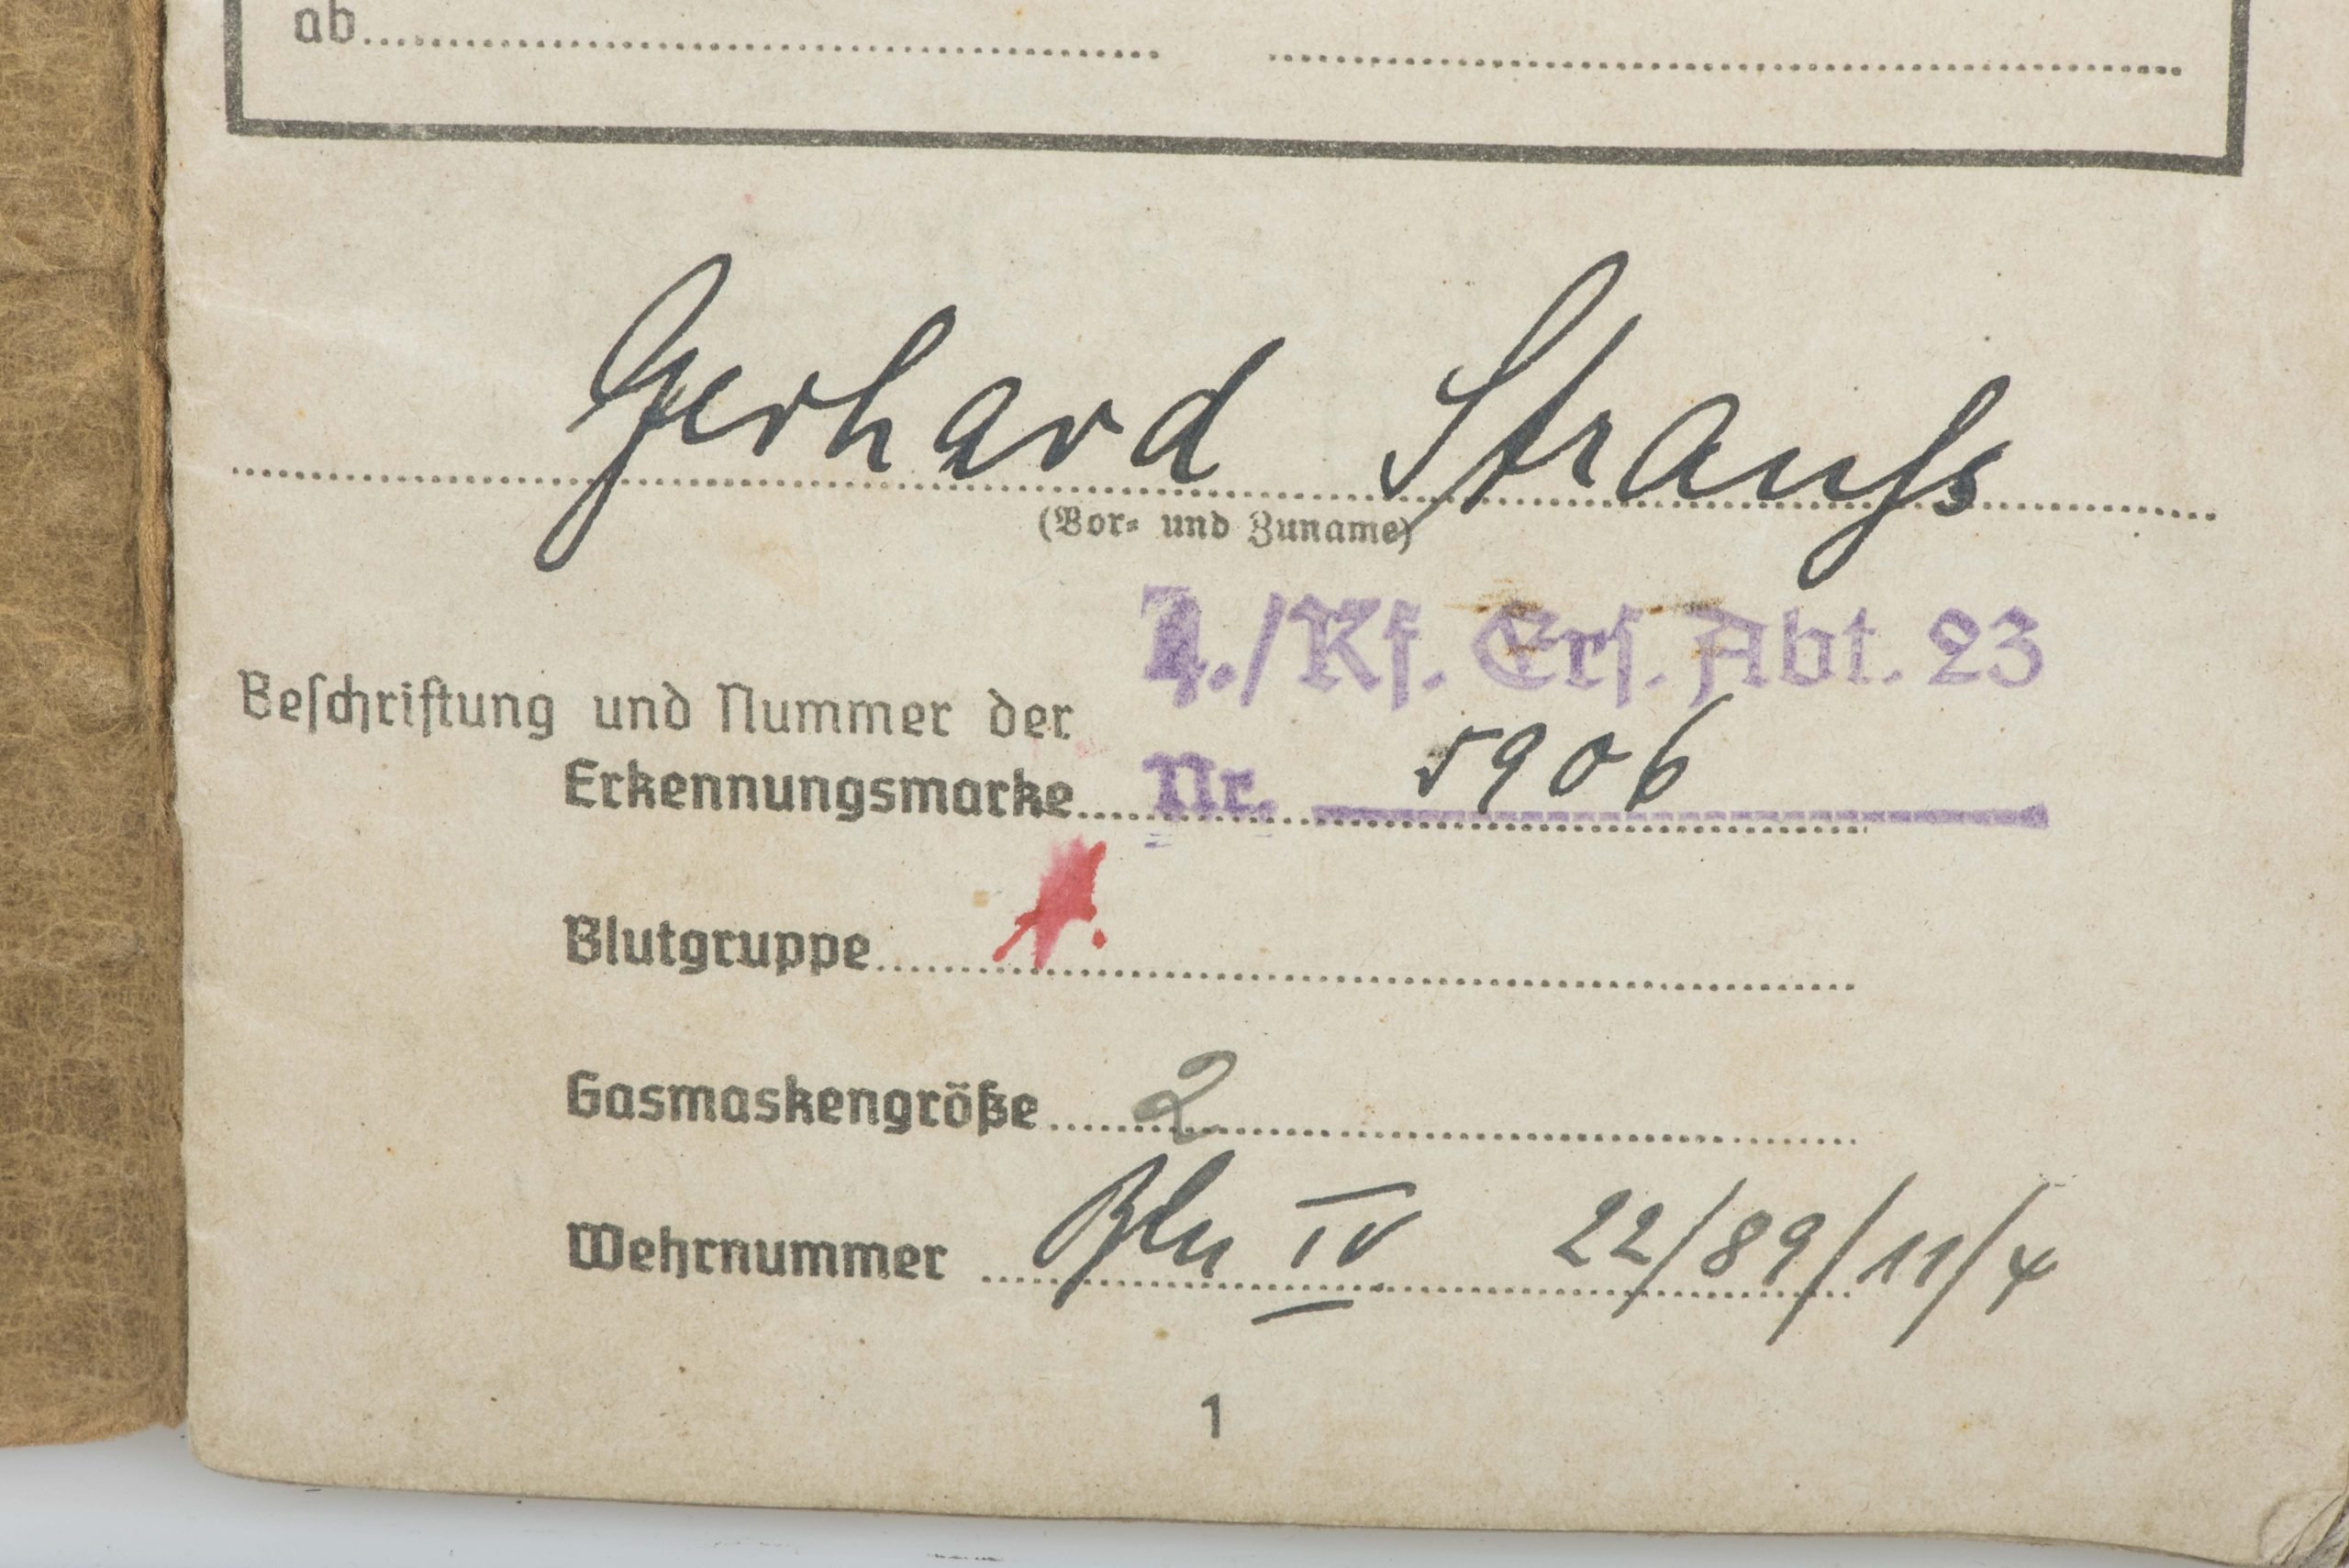 ab
Gerhard Strauß
(Vor- und Zuname)
/Kf. Ers. Abt. 23
Beschriftung und Nummer der
Erkennungsmarke Nr. 5906
Blutgruppe
Gasmaskengröße 2
Wehrnummer Bln IV 22/89/11/4
1